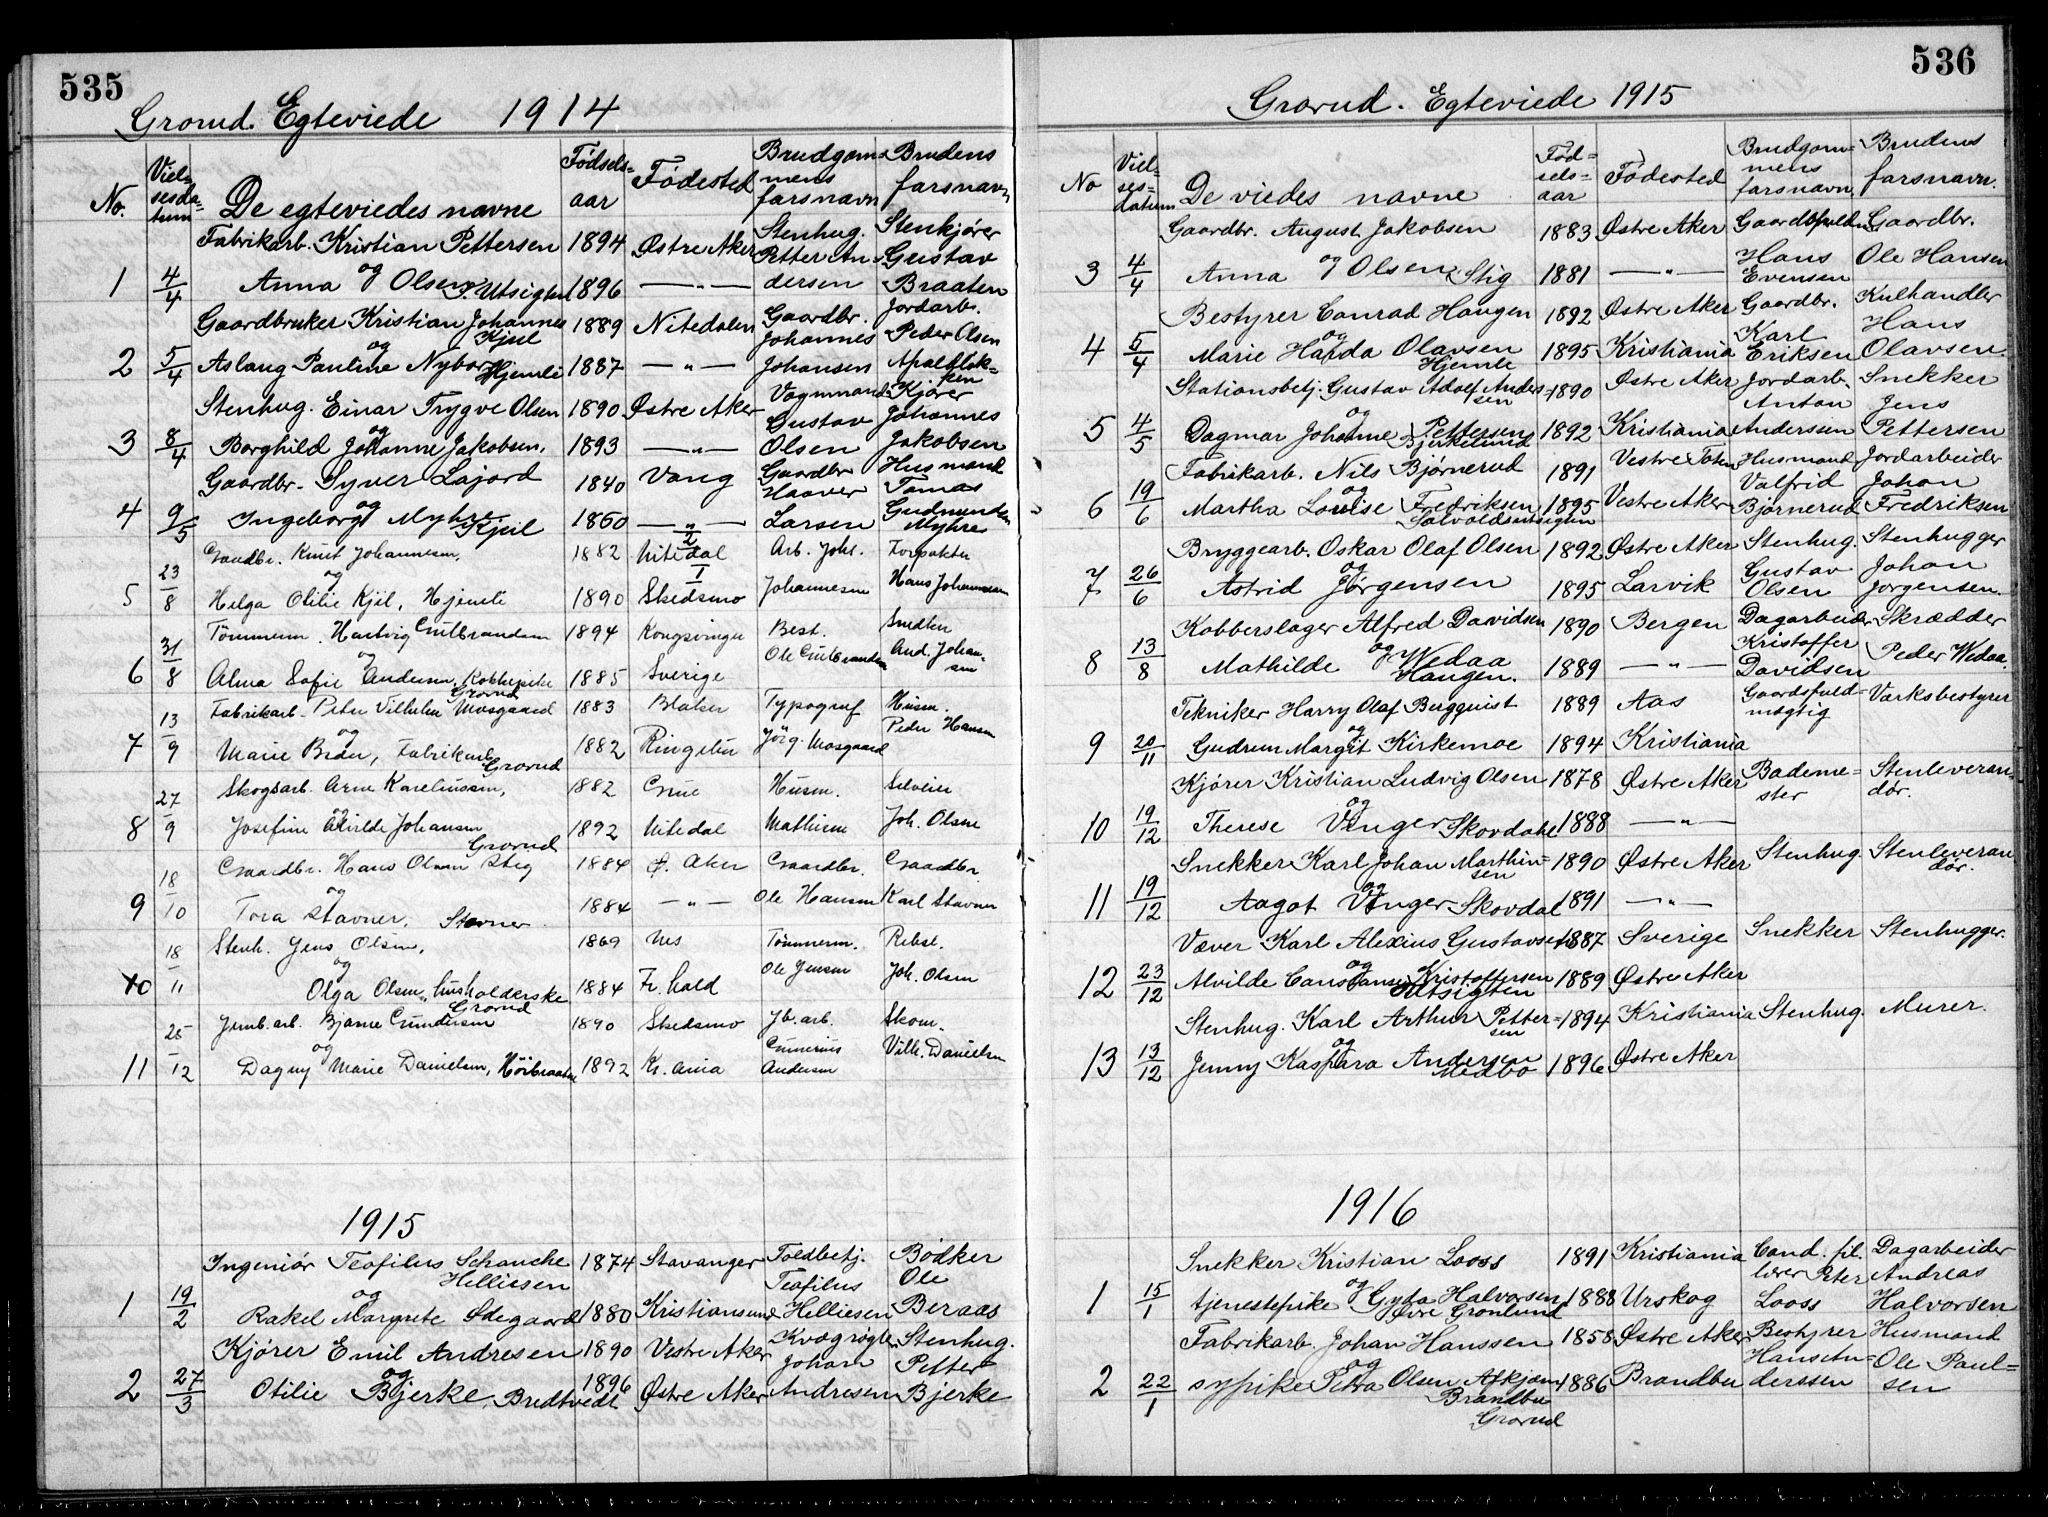 535
Grorud. Egteviede 1914
No. Vielsesdatum De egteviedes navne Fødselsaar Fødested Brudgommens farsnavn Brudens farsnavn
Fabrikarb. Kristian Pettersen 1894 Østre Aker Stenhug. Stenkjører
og Petter An- Gustav
1 4/4 Anna Olsen, Utsigten 1896 —„— dersen Braaten
Gaardbruker Kristian Johannes Kjul 1889 Nitedalen Gaardbr. Johannes Jordarb. Peder Olsen
og
2 5/4 Aslaug Pauline Nyborg Hjemli 1887 —„— Johansen Apaldløkken
Stenhug. Einar Trygve Olsen 1890 Østre Aker Vognmand Gustav Kjører Johannes
og
3 8/4 Borghild Johanne Jakobsen. 1893 —„— Olsen Jakobsen
Gaardbr. Syver Lajord 1840 Vang Gaardbr Haaver Husmand Tomas
og
4 9/5 Ingeborg Myhre Kjul 1860 —„— Larsen Gudmunden Myhre
Gaardbr. Knut Johannesen, 1882 Nitedal Arb. Johs. Forpakter
og
5 23/8 Helga Otilie Kjöl, Hjemli 1890 Skedsmo Johannesen Hans Johannesen
Tömmerm. Hartvig Gulbrandsen 1894 Kongsvinger Best. Ole Gulbrandsen Snedker And. Johansen
og
6 31/8 Alma Sofie Andersen, Kokkepike Grorud 1885 Sverige
Fabrikarb. Peter Vilhelm Mosgaard 1883 Blaker Typograf Husm.
og
7 13/9 Marie Bråten, Fabrikarb. Grorud 1882 Ringebu Jörg. Mosgaard Peder Hansen
Skogsarb. Arne Kareliussen, 1882 Grue Husm. Selveier
og
8 27/9 Josefine Alvilde Johansen Grorud 1892 Nitedal Mathisen Joh. Olsen
Gaardbr. Hans Olsen Stig 1884 Ø. Aker Gaardbr. Gaardbr.
og
9 18/10 Tora Stavner, Stovner 1884 —„— Ole Hansen Karl Stavner
Stenh. Jens Olsen, 1869 Nes Tömmerm. Rebsl.
og
10 18/11 Olga Olsen, husholderske Grorud 1884 Fr.hald Ole Jensen Joh. Olsen
Jernb.arb. Bjarne Gundersen 1890 Skedsmo Jb.arb. Skom.
og
11 25/12 Dagny Marie Danielsen, Höibraaten 1892 Kr.ania Gunerius Andersen Vilh. Danielsen
1915
Ingeniør Teofilus Schanche Helliesen 1874 Stavanger Toldbetj. Teofilus Bödker Ole
og
1 19/2 Rakel Margrete Ødegaard 1880 Kristiansund Helliesen Beraas
Kjører Emil Andresen 1890 Vestre Aker Kvægrøgter Johan Stenhug. Petter
og
2 27/3 Otilie Bjerke, Bredtvedt 1896 Østre Aker Andresen Bjerke
536
Grorud. Egteviede 1915
No Vielsesdatum De viedes navne Fødselsaar Fødested Brudgommens farsnavn. Brudens farsnavn.
Gaardbr. August Jakobsen 1883 Østre Aker Gaardbr. Gaardbr.
og
3 4/4 Anna Olsen, Stig 1881 —„— Hans Evensen Ole Hansen
Bestyrer Conrad Haugen 1892 Østre Aker Gaardbr. Karl Kulhandler Hans
og
4 5/4 Marie Harda Olavsen Hjemli 1895 Kristiania Eriksen Olavsen.
Stationsbetj. Gustav Adolf Andersen 1890 Østre Aker Jordarb. Anton Snekker Jens
og
5 4/5 Dagmar Johanne Pettersen Bjerkelund 1892 Kristiania Anderssen Pettersen
Fabrikarb. Nils Bjørnerud 1891 Vestre Toten Husmand Valfrid Jordarbeider Johan
og
6 19/6 Martha Lovise Fredriksen Solvoldsensigten 1895 Vestre Aker Bjørnerud Fredriksen
Bryggearb. Oskar Olaf Olsen 1892 Østre Aker Stenhug. Stenhugger
og
7 26/6 Astrid Jørgensen 1895 Larvik Gustav Olsen Johan Jorgensen.
Kobberslager Alfred Davidsen 1890 Bergen Dagarbeider Skrædder
og
8 13/8 Mathilde Wedaa Haugen. 1889 —„— Kristoffer Davidsen Peder Wedaa.
Tekniker Harry Olaf Bergquist 1889 Aas Gaardsfuldmægtig Værksbestyrer
og
9 20/11 Gudrun Margit Kirkemoe 1894 Kristiania
Kjører Kristian Ludvig Olsen 1878 Østre Aker Bademester Stenleverandør.
og
10 19/12 Therese Vinger Skovdahl 1888 —„—
Snekker Karl Johan Marthinsen 1890 Østre Aker Stenhug. Stenleverandør.
og
11 19/12 Aagot Vinger Skovdal 1891 —„—
Væver Karl Alexius Gustavsen 1887 Sverige Snekker Stenhugger.
og
12 23/12 Alvilde Constanse Kristoffersen Utsigten 1889 Østre Aker
Stenhug. Karl Arthur Pettersen 1894 Kristiania Stenhug. Murer.
og
13 13/12 Jenny Kaspara Andersen Medbo 1896 Østre Aker
1916
Snekker Kristian Looss 1891 Kristiania Cand. fil. lærer Peter Dagarbeider Andreas
og
1 15/1 tjenestepike Gyda Halvorsen Øvre Grønlund 1888 Urskog Looss Halvorsen
Fabrikarb. Johan Hanssen 1858 Østre Aker Bestyrer Husmand
og
2 22/1 sypike Petra Olsen Brandbu Grorud 1886 Brandbu Hans Anderssen Ole Paulsen